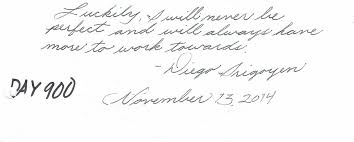 Luckily, I will never be
perfect and will always have
more to work towards.
- Diego Irigoyen
DAY 900
November 23, 2014